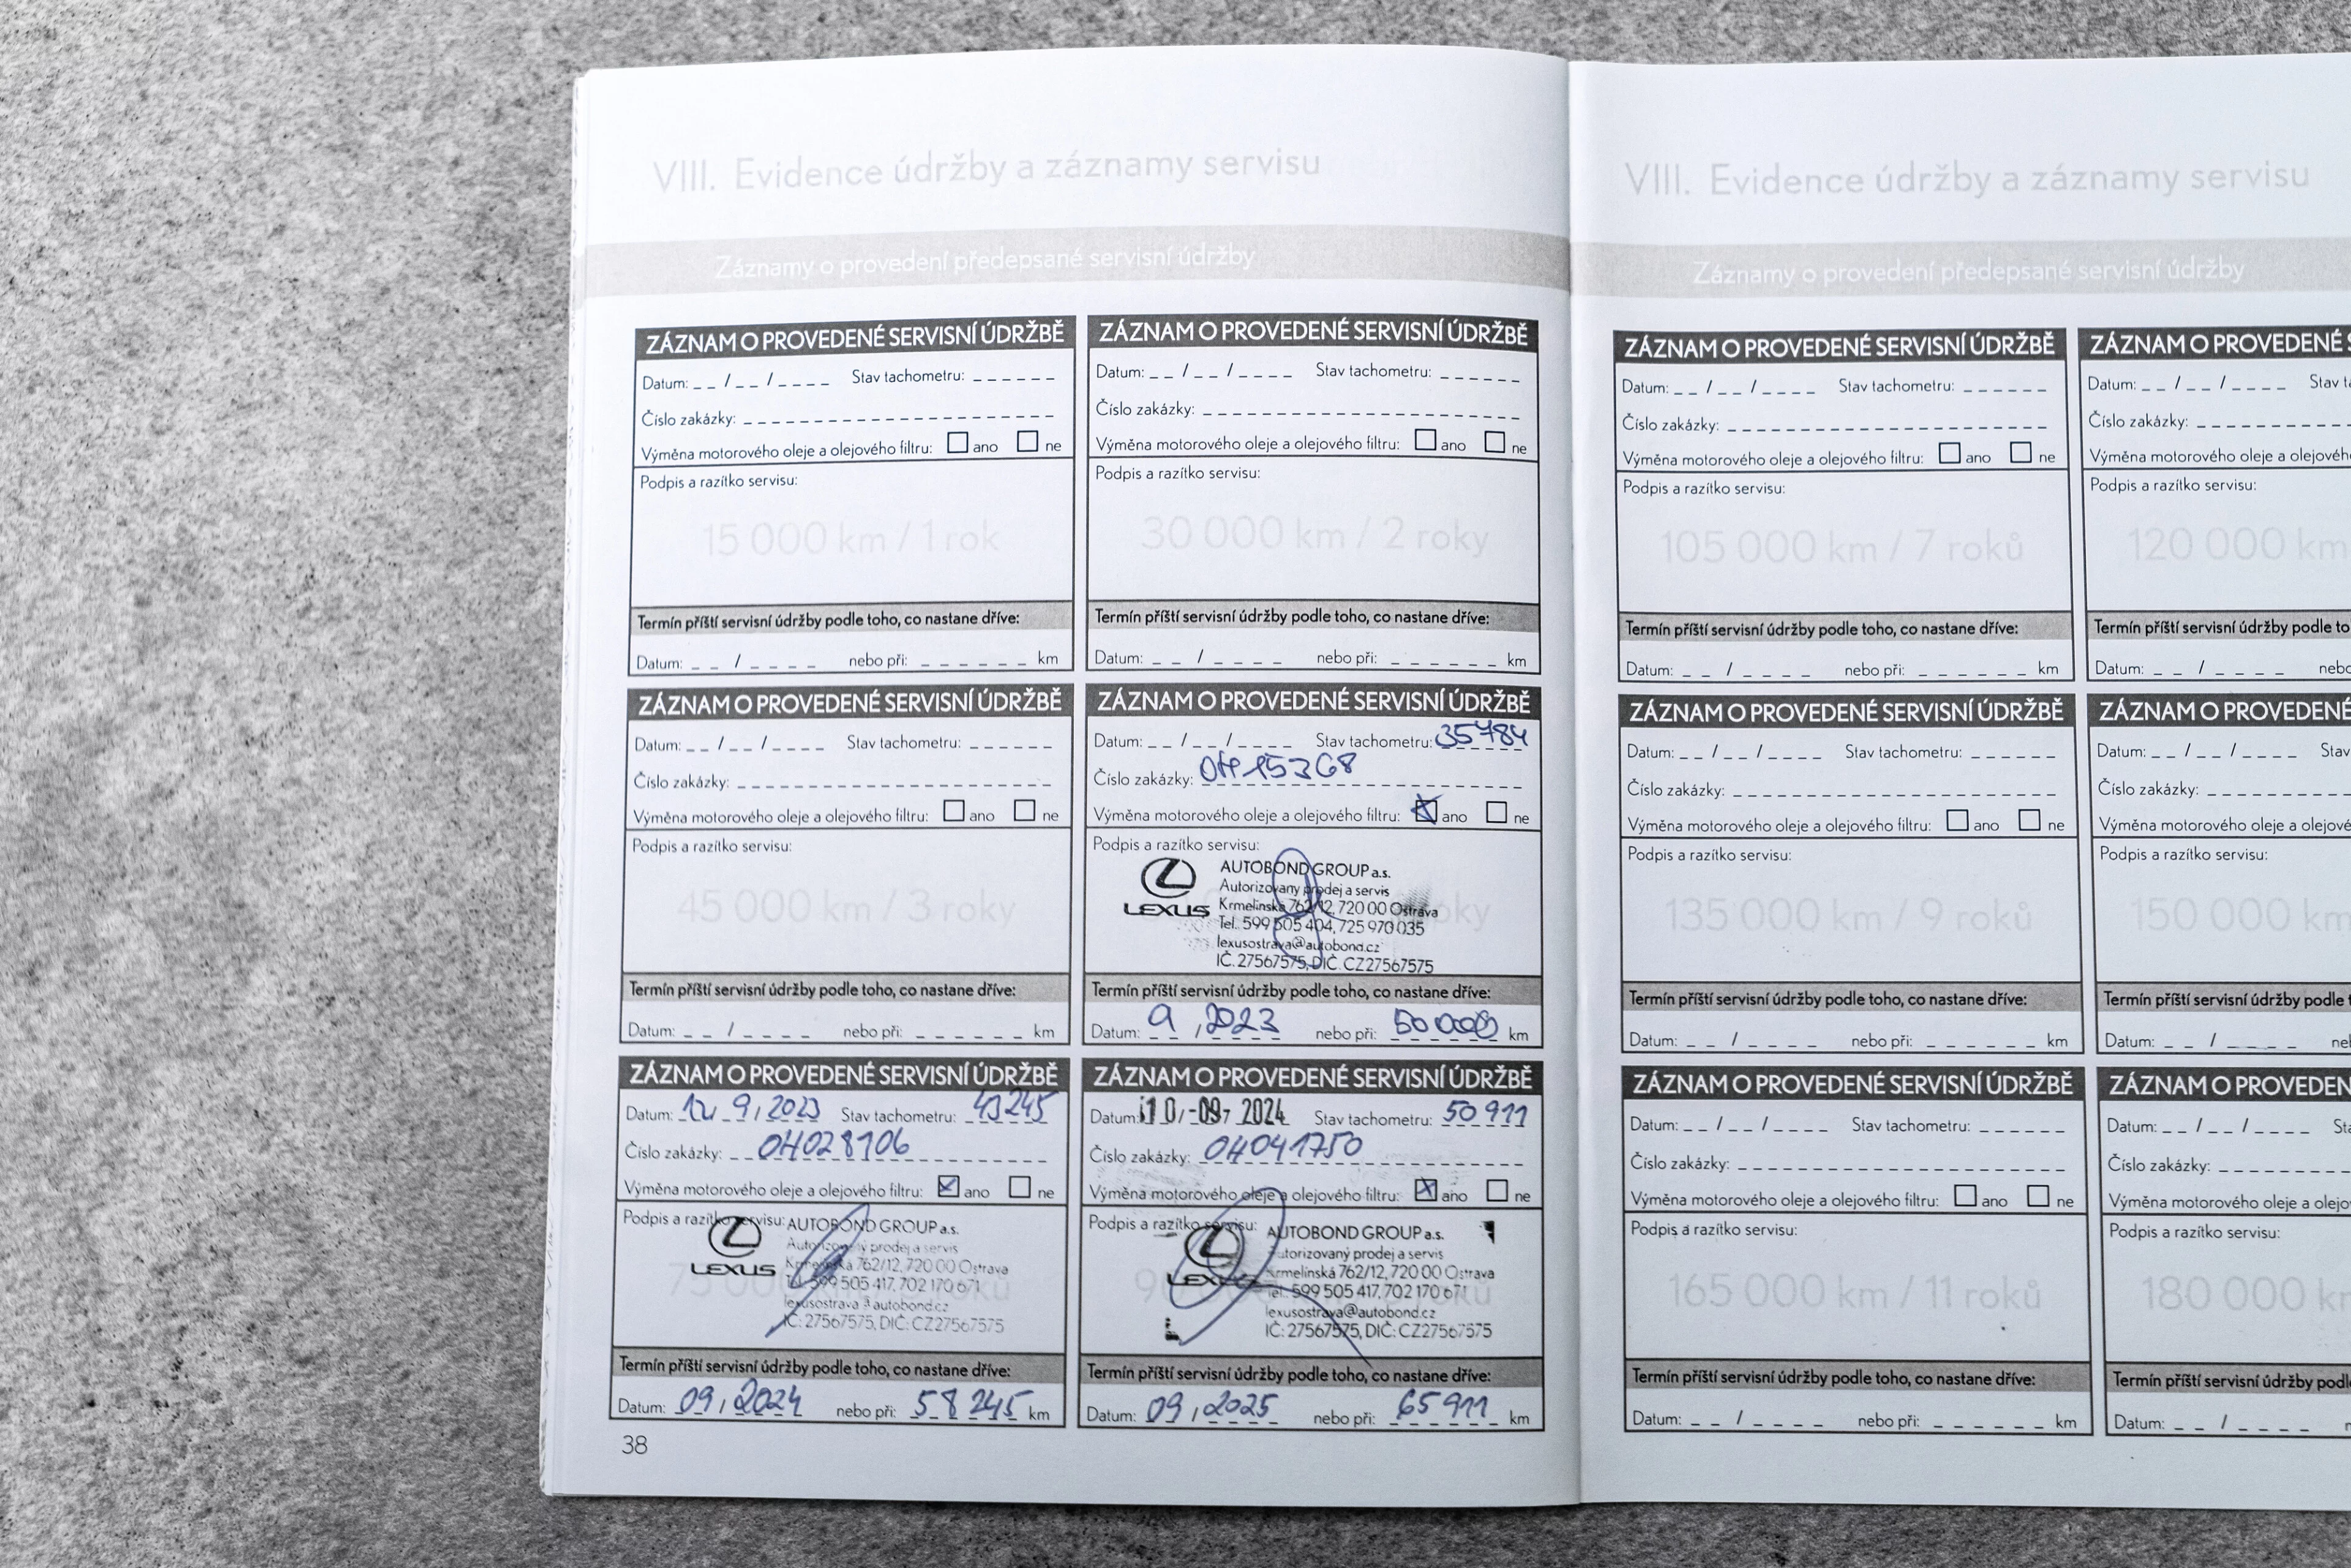 VIII. Evidence údržby a záznamy servisu
Záznamy o provedení předepsané servisní údržby
ZÁZNAM O PROVEDENÉ SERVISNÍ ÚDRŽBĚ
Datum: _ _ / _ _ / _ _ _ _ Stav tachometru: _ _ _ _ _ _
Číslo zakázky:
Výměna motorového oleje a olejového filtru: ano ne
Podpis a razítko servisu:
15 000 km / 1 rok
Termín příští servisní údržby podle toho, co nastane dříve:
Datum: _ _ / _ _ _ _ nebo při: _ _ _ _ _ _ km
ZÁZNAM O PROVEDENÉ SERVISNÍ ÚDRŽBĚ
Datum: _ _ / _ _ / _ _ _ _ Stav tachometru: _ _ _ _ _ _
Číslo zakázky:
Výměna motorového oleje a olejového filtru: ano ne
Podpis a razítko servisu:
30 000 km / 2 roky
Termín příští servisní údržby podle toho, co nastane dříve:
Datum: _ _ / _ _ _ _ nebo při: _ _ _ _ _ _ km
ZÁZNAM O PROVEDENÉ SERVISNÍ ÚDRŽBĚ
Datum: _ _ / _ _ / _ _ _ _ Stav tachometru: _ _ _ _ _ _
Číslo zakázky:
Výměna motorového oleje a olejového filtru: ano ne
Podpis a razítko servisu:
45 000 km / 3 roky
Termín příští servisní údržby podle toho, co nastane dříve:
Datum: _ _ / _ _ _ _ nebo při: _ _ _ _ _ _ km
ZÁZNAM O PROVEDENÉ SERVISNÍ ÚDRŽBĚ
Datum: _ _ / _ _ / _ _ _ _ Stav tachometru: 35784
Číslo zakázky:
Výměna motorového oleje a olejového filtru: ano ne
Podpis a razítko servisu:
LEXUS
AUTOBOND GROUP a.s.
Autorizovany prodej a servis
Krmelínská 762/12, 720 00 Ostrava
Tel. 599 505 404, 725 970 035
lexusostrava@autobond.cz
IČ. 27567575, DIČ. CZ27567575
Termín příští servisní údržby podle toho, co nastane dříve:
Datum: 9 / 2023 nebo při: 50 000 km
ZÁZNAM O PROVEDENÉ SERVISNÍ ÚDRŽBĚ
Datum: 9 / 2023 Stav tachometru: 43245
Číslo zakázky: OH028106
Výměna motorového oleje a olejového filtru: ano ne
Podpis a razítko servisu:
LEXUS
AUTOBOND GROUP a.s.
Autorizovaný prodej a servis
Krmelínská 762/12, 720 00 Ostrava
Tel. 599 505 417, 702 170 671
lexusostrava@autobond.cz
IČ: 27567575, DIČ: CZ27567575
Termín příští servisní údržby podle toho, co nastane dříve:
Datum: 09 / 2024 nebo při: 58 245 km
ZÁZNAM O PROVEDENÉ SERVISNÍ ÚDRŽBĚ
Datum: 10 -09- 2024 Stav tachometru: 50 911
Číslo zakázky: OH041750
Výměna motorového oleje a olejového filtru: ano ne
Podpis a razítko servisu:
LEXUS
AUTOBOND GROUP a.s.
Autorizovaný prodej a servis
Krmelínská 762/12, 720 00 Ostrava
Tel. 599 505 417, 702 170 671
lexusostrava@autobond.cz
IČ: 27567575, DIČ: CZ27567575
Termín příští servisní údržby podle toho, co nastane dříve:
Datum: 09 / 2025 nebo při: 65 911 km
38
VIII. Evidence údržby a záznamy servisu
Záznamy o provedení předepsané servisní údržby
ZÁZNAM O PROVEDENÉ SERVISNÍ ÚDRŽBĚ
Datum: _ _ / _ _ / _ _ _ _ Stav tachometru: _ _ _ _ _ _
Číslo zakázky:
Výměna motorového oleje a olejového filtru: ano ne
Podpis a razítko servisu:
105 000 km / 7 roků
Termín příští servisní údržby podle toho, co nastane dříve:
Datum: _ _ / _ _ _ _ nebo při: _ _ _ _ _ _ km
ZÁZNAM O PROVEDENÉ
Datum: _ _ / _ _ / _ _ _ _ Stav
Číslo zakázky:
Výměna motorového oleje a
Podpis a razítko servisu:
120 000 km
Termín příští servisní údržby podle
Datum: _ _ / _ _ _ _
ZÁZNAM O PROVEDENÉ SERVISNÍ ÚDRŽBĚ
Datum: _ _ / _ _ / _ _ _ _ Stav tachometru: _ _ _ _ _ _
Číslo zakázky:
Výměna motorového oleje a olejového filtru: ano ne
Podpis a razítko servisu:
135 000 km / 9 roků
Termín příští servisní údržby podle toho, co nastane dříve:
Datum: _ _ / _ _ _ _ nebo při: _ _ _ _ _ _ km
ZÁZNAM O PROVEDENÉ
Datum: _ _ / _ _ / _ _ _ _ Stav
Číslo zakázky:
Výměna motorového oleje a
Podpis a razítko servisu:
150 000 km
Termín příští servisní údržby podle
Datum: _ _ / _ _ _ _
ZÁZNAM O PROVEDENÉ SERVISNÍ ÚDRŽBĚ
Datum: _ _ / _ _ / _ _ _ _ Stav tachometru: _ _ _ _ _ _
Číslo zakázky:
Výměna motorového oleje a olejového filtru: ano ne
Podpis a razítko servisu:
165 000 km / 11 roků
Termín příští servisní údržby podle toho, co nastane dříve:
Datum: _ _ / _ _ _ _ nebo při: _ _ _ _ _ _ km
ZÁZNAM O
Datum: _ _ / _ _ / _ _ _ _
Číslo zakázky:
Výměna motorového oleje a
Podpis a razítko servisu:
180 000
Termín příští servisní údržby
Datum: _ _ / _ _ _ _